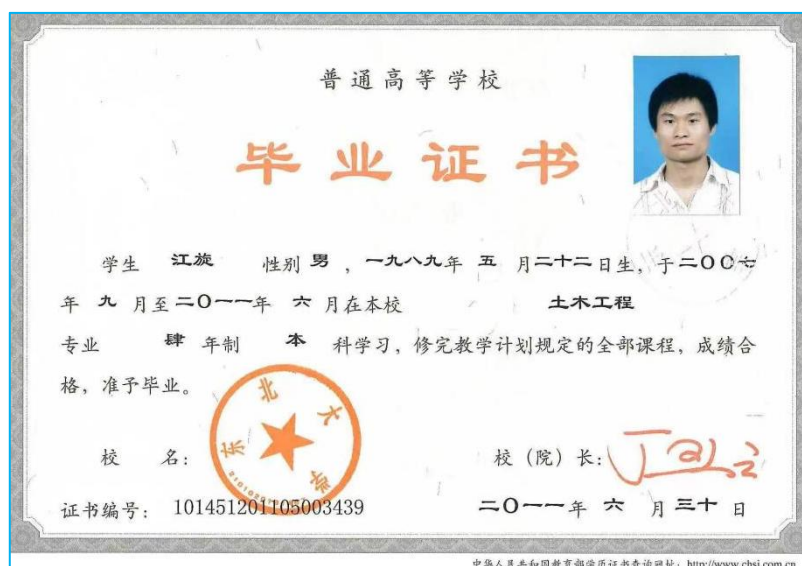 普通高等学校
毕业证书
学生 江旋 性别 男 ，一九八九年 五 月二十二日生，于二〇〇七
年 九 月至二〇一一年 六 月在本校 土木工程
专业 肆 年制 本 科学习，修完教学计划规定的全部课程，成绩合
格，准予毕业。
东北大学
校 名： 校（院）长：
证书编号： 101451201105003439 二〇一一年 六 月三十日
中华人民共和国教育部学历证书查询网址：http://www.chsi.com.cn